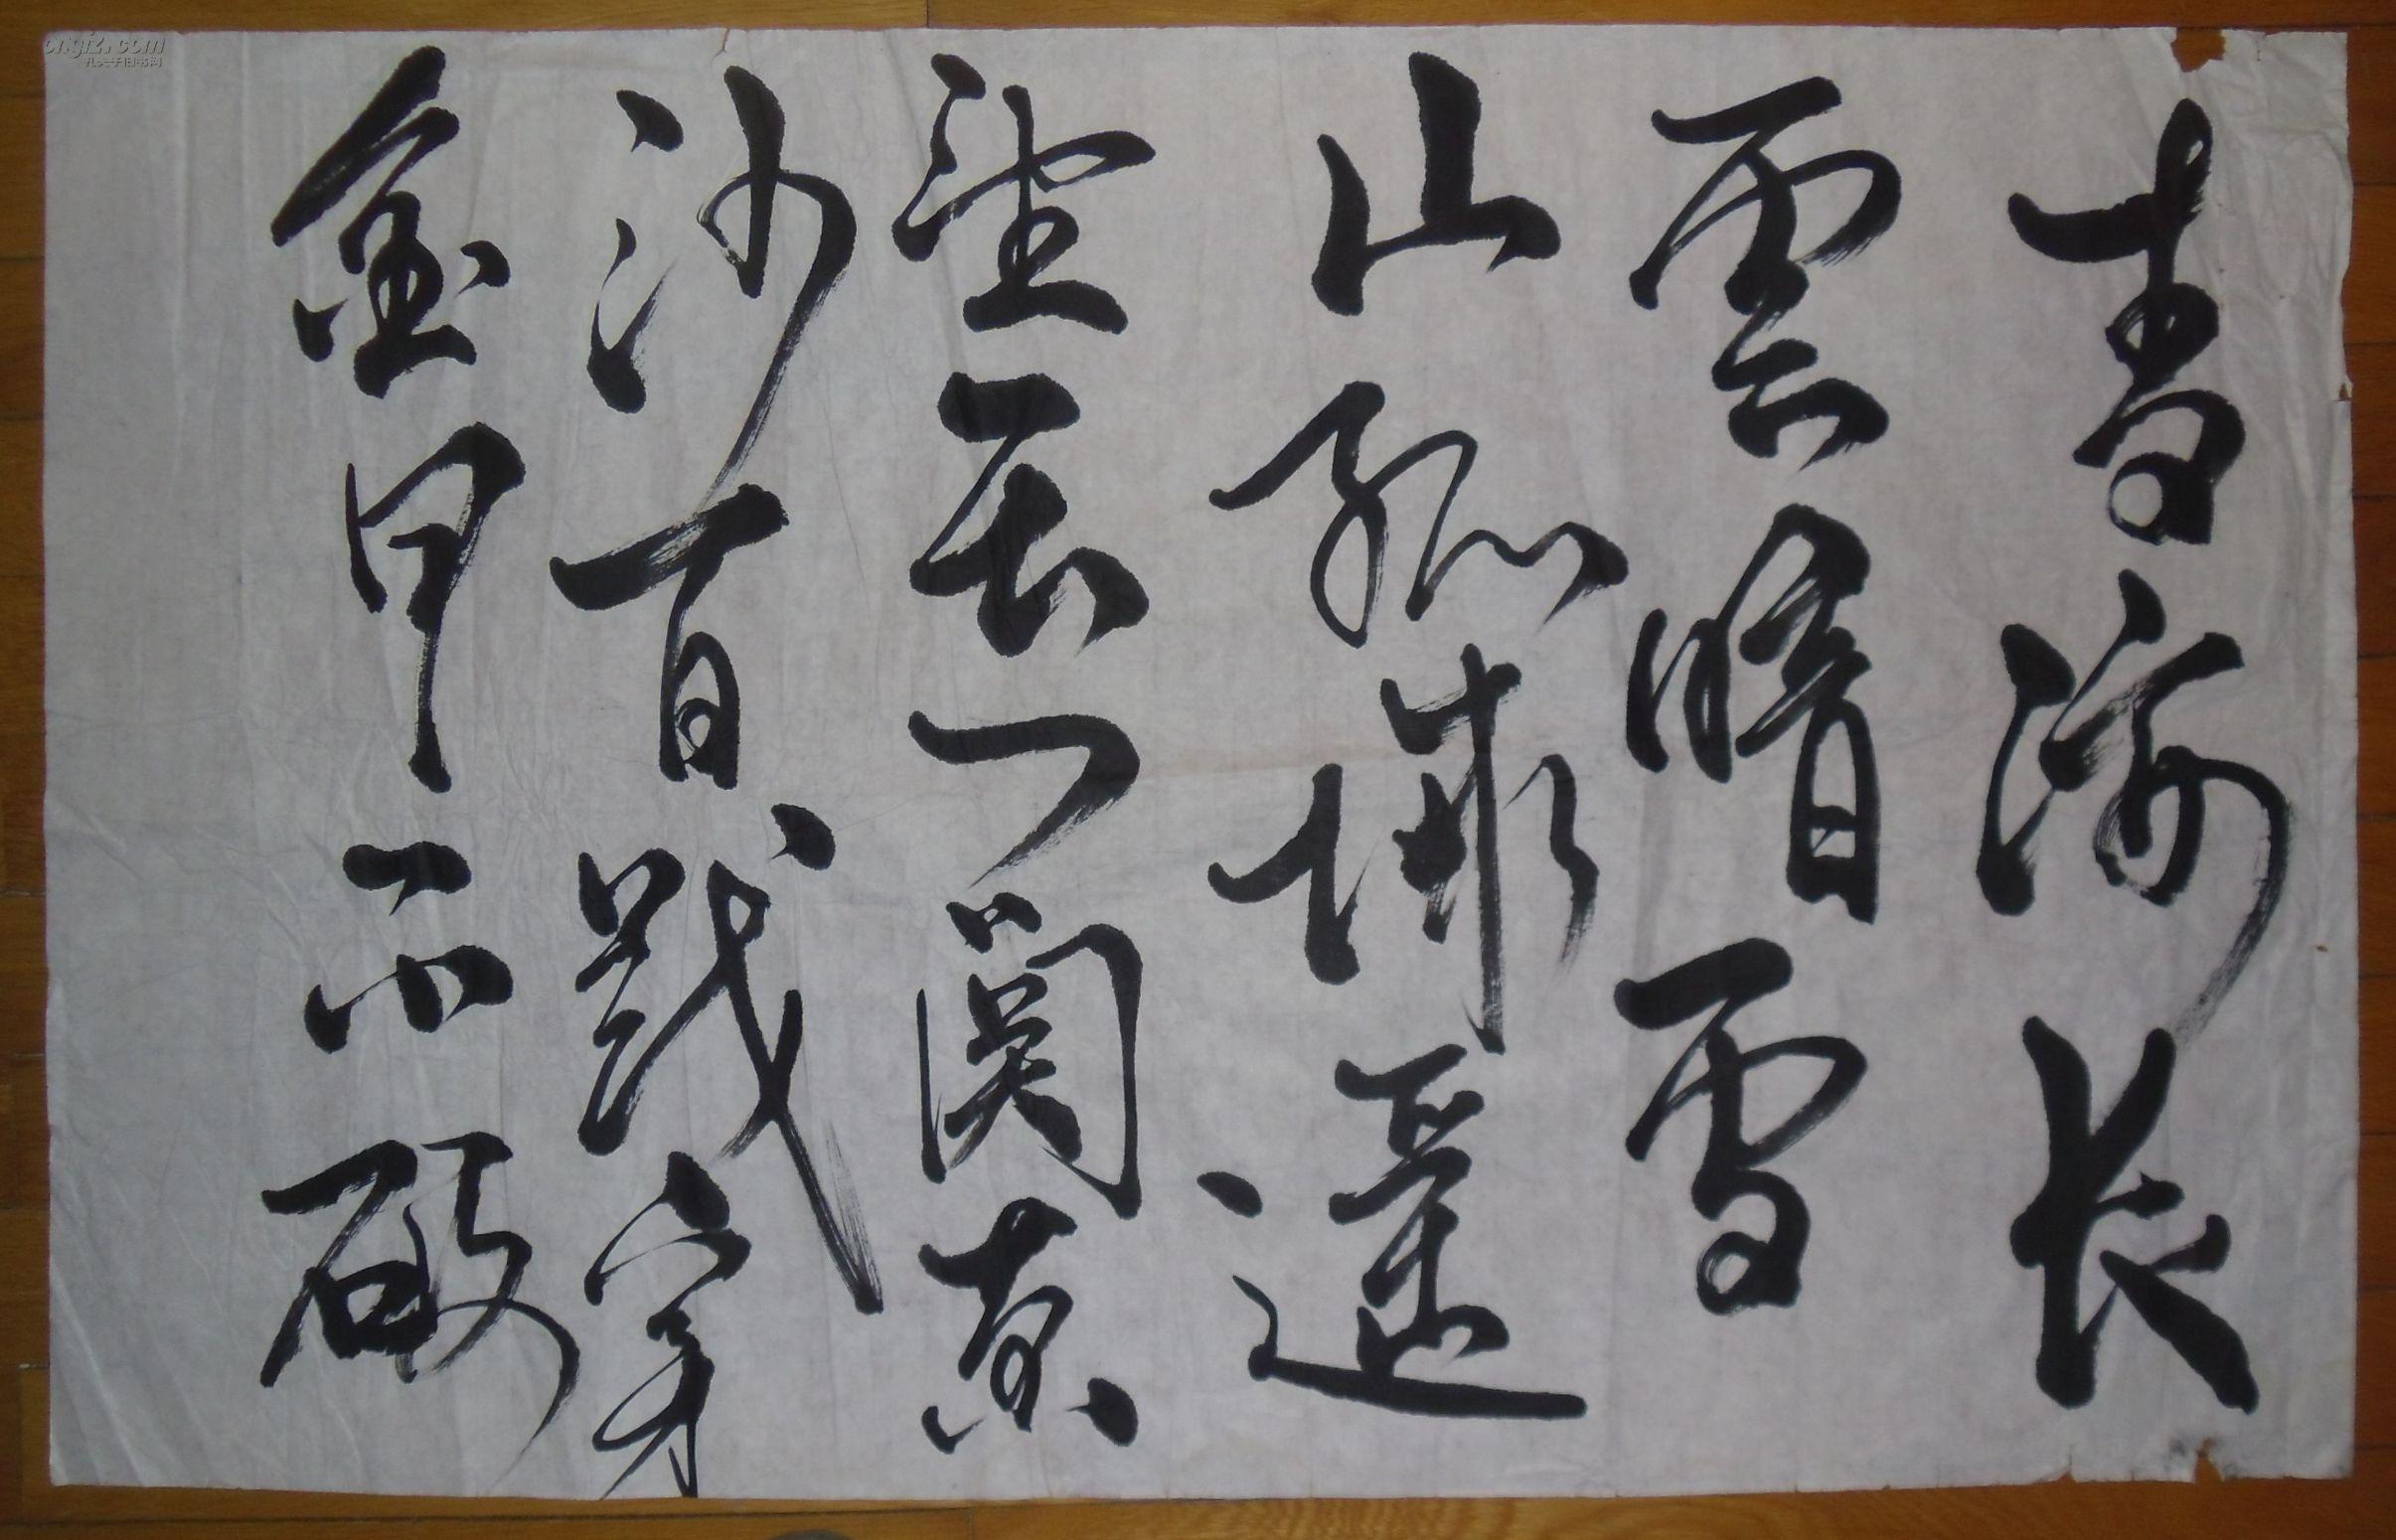 青海长
雲暗雪
山孤城遥
望玉门関黄
沙百戰穿
金甲不破
ongfz.com
孔夫子旧书网